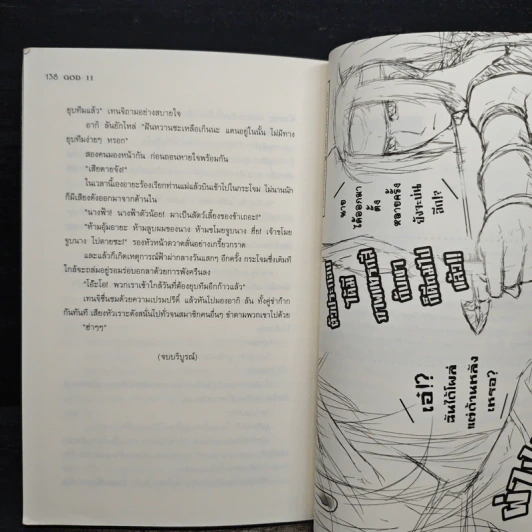 138 GOD 11
ยุบทีมแล้ว" เทนจิถามอย่างสบายใจ
อากิ ลันยักไหล่ "ฝันหวานซะเหลือเกินนะ แคนอยู่ในนั้น ไม่มีทาง
ยุบทีมง่ายๆ หรอก"
สองคนมองหน้ากัน ก่อนถอนหายใจพร้อมกัน
"เสียดายจัง!"
ในเวลานี้เองอายะร้องเรียกท่านแม่แล้วบินเข้าไปในกระโจม ไม่นานนัก
ก็มีเสียงดังออกมาจากด้านใน
"นางฟ้า! นางฟ้าตัวน้อย! มาเป็นสัตว์เลี้ยงของข้าเถอะ!"
"ห้ามอุ้มอายะ ห้ามลูบผมของนาง ห้ามขโมยจูบนาง ฮึ่ย! เจ้าขโมย
จูบนาง ไปตายซะ!" รองหัวหน้าตวาดลั่นอย่างเกรี้ยวกราด
และแล้วก็เกิดเหตุการณ์ฟ้าผ่ากลางวันแสกๆ อีกครั้ง กระโจมซึ่งเดิมที
ใกล้จะถล่มอยู่รอมร่อบอกลาด้วยการพังครืนลง
"โอ๊ะโอ! พวกเราเข้าใกล้วันที่ต้องยุบทีมอีกก้าวแล้ว"
เทนจิชื่นชมด้วยความเปรมปรีดิ์ แล้วหันไปมองอากิ ลัน ทั้งคู่ขำก๊าก
กันทันที เสียงหัวเราะดังลั่นไปทั่วจนสมาชิกคนอื่นๆ ขำตามพวกเขาไปด้วย
"ฮ่าๆๆ"
(จบบริบูรณ์)
นาย
ได้ออกมา
ตั้ง
หลายครั้ง
ยังจะบ่น
อีก!?
เอ๋!?
ฉันได้โผล่
แต่ด้านหลัง
เหรอ?